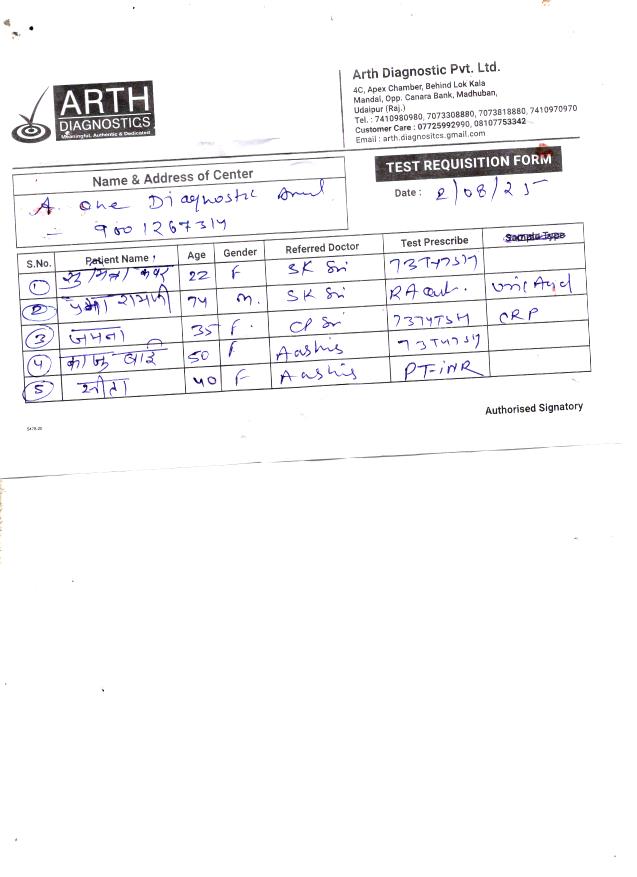 ARTH
DIAGNOSTICS
Meaningful, Authentic & Dedicated
Arth Diagnostic Pvt. Ltd.
4C, Apex Chamber, Behind Lok Kala
Mandal, Opp. Canara Bank, Madhuban,
Udaipur (Raj.)
Tel. : 7410980980, 7073308880, 7073818880, 7410970970
Customer Care : 07725992990, 08107753342
Email : arth.diagnositcs.gmail.com
TEST REQUISITION FORM
Name & Address of Center
A. One Diagnostic
9001267314
Date : 2/08/25
S.No. Patient Name Age Gender Referred Doctor Test Prescribe Sample Type
1 22 F SK Sri T3T4TSH
2 74 M. SK Sri RA Uric Acid
3 जमना 35 F. CP Sri T3T4TSH CRP
4 काजू बाई 50 F Aashis T3T4TSH
5 सीता 40 F Aashis PT-iNR
Authorised Signatory